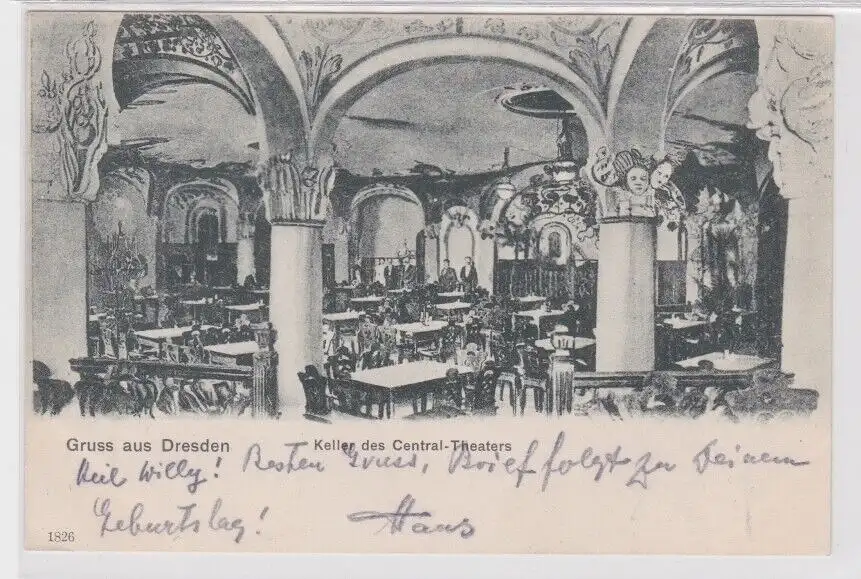 Gruss aus Dresden
Keller des Central-Theaters
Heil Willy! Besten Gruss, Brief folgt zu Deinem
Geburtstag! Hans
1826